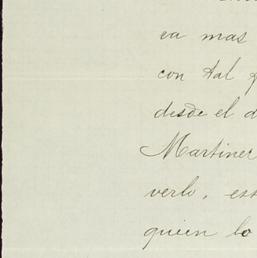 ea mas
con tal
desde el d
Martinez
verlo, est
quien lo